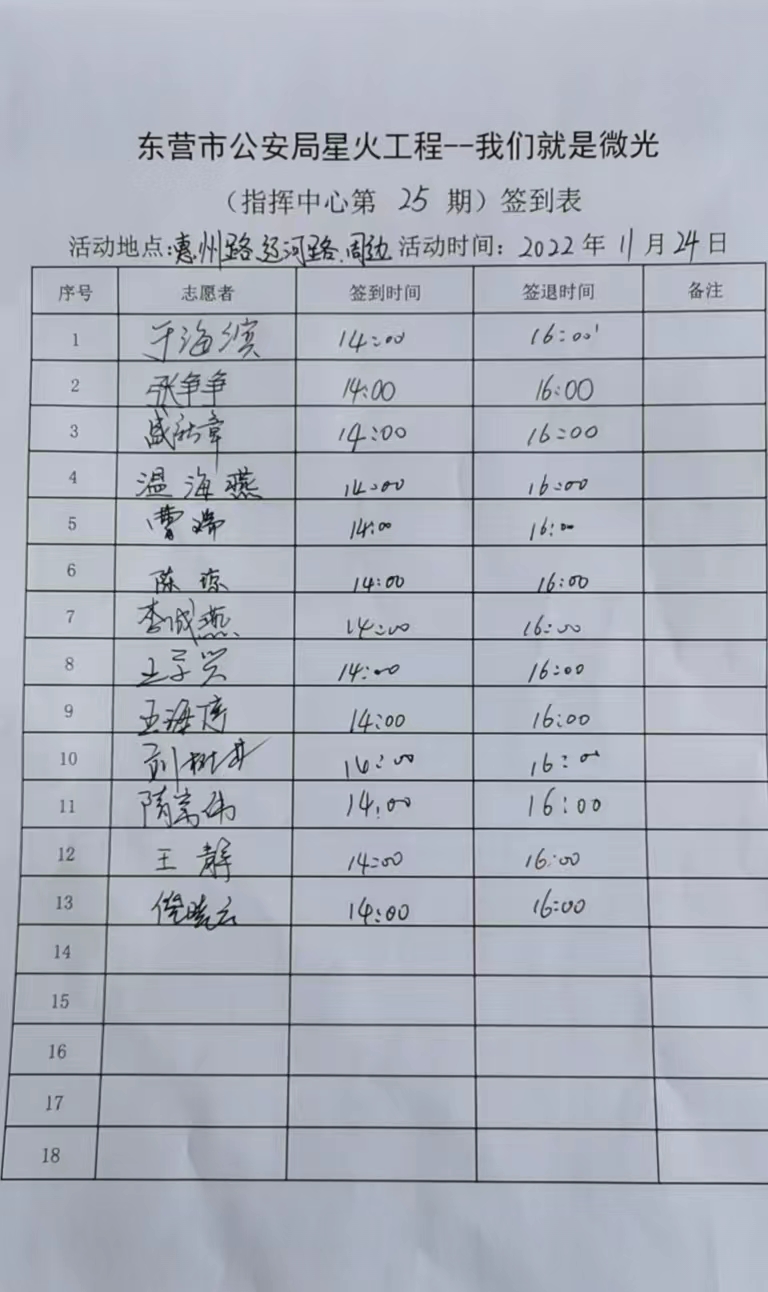 东营市公安局星火工程--我们就是微光
（指挥中心第 25 期）签到表
活动地点:惠州路、运河路、周边 活动时间：2022 年 11 月 24 日
序号 志愿者 签到时间 签退时间 备注
1 于海滨 14:00 16:00
2 张争争 14:00 16:00
3 盛 章 14:00 16:00
4 温海燕 14:00 16:00
5 曹瑞 14:00 16:00
6 陈琼 14:00 16:00
7 李成燕 14:00 16:00
8 王 14:00 16:00
9 王海 14:00 16:00
10 刘树 14:00 16:00
11 隋 伟 14:00 16:00
12 王静 14:00 16:00
13 倪晓云 14:00 16:00
14
15
16
17
18